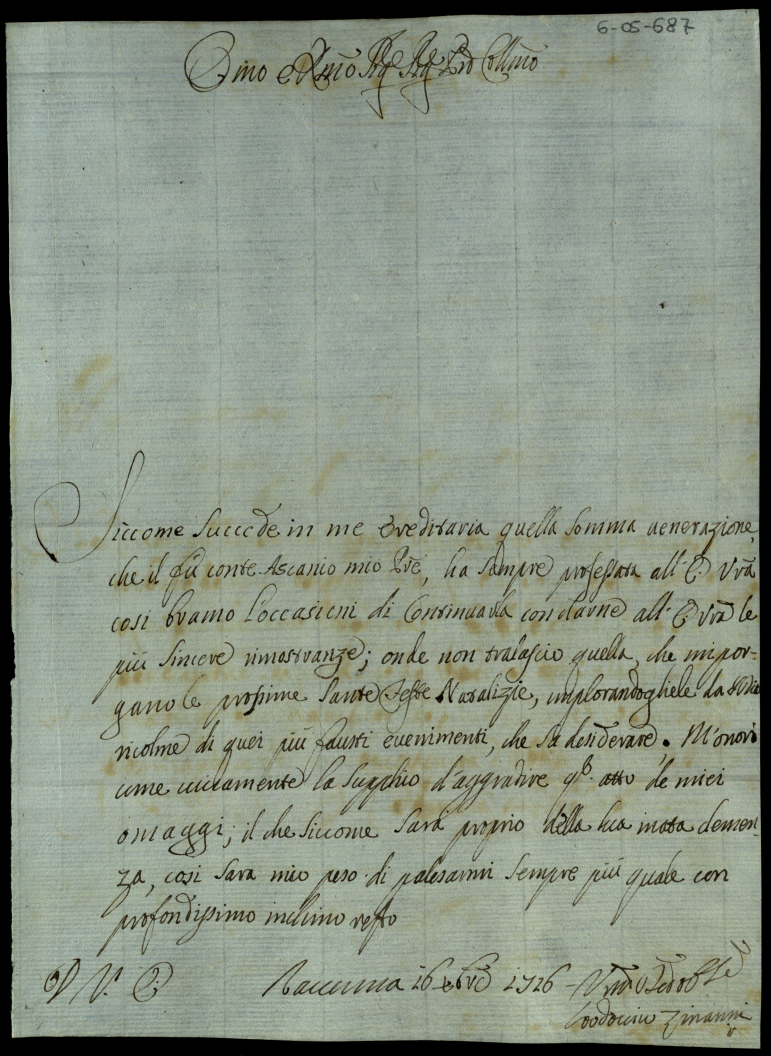 6-05-687
Emo e Rmo Sig Sig Prō Collmo
Siccome succede in me ereditaria quella somma venerazione,
che il fù conte Ascanio mio Prē, ha sempre professata all' E Vrā
così bramo l'occasioni di continuarla con darne all' E Vrā le
più sincere rimostranze; onde non tralascio quella, che mi por-
gano le prossime Sante Feste Natalizie, implorandogliele da
ricolme di quei più fausti evenimenti, che sa desiderare. M'onori
come vivamente la supplico d'aggradire atto de miei
omaggi; il che siccome sarà proprio della sua innata clemen-
za, così sarà mio peso di palesarmi sempre più quale con
profondissimo inchino resto
D V. E Ravenna 16 Xbrē 1726
Zinanni